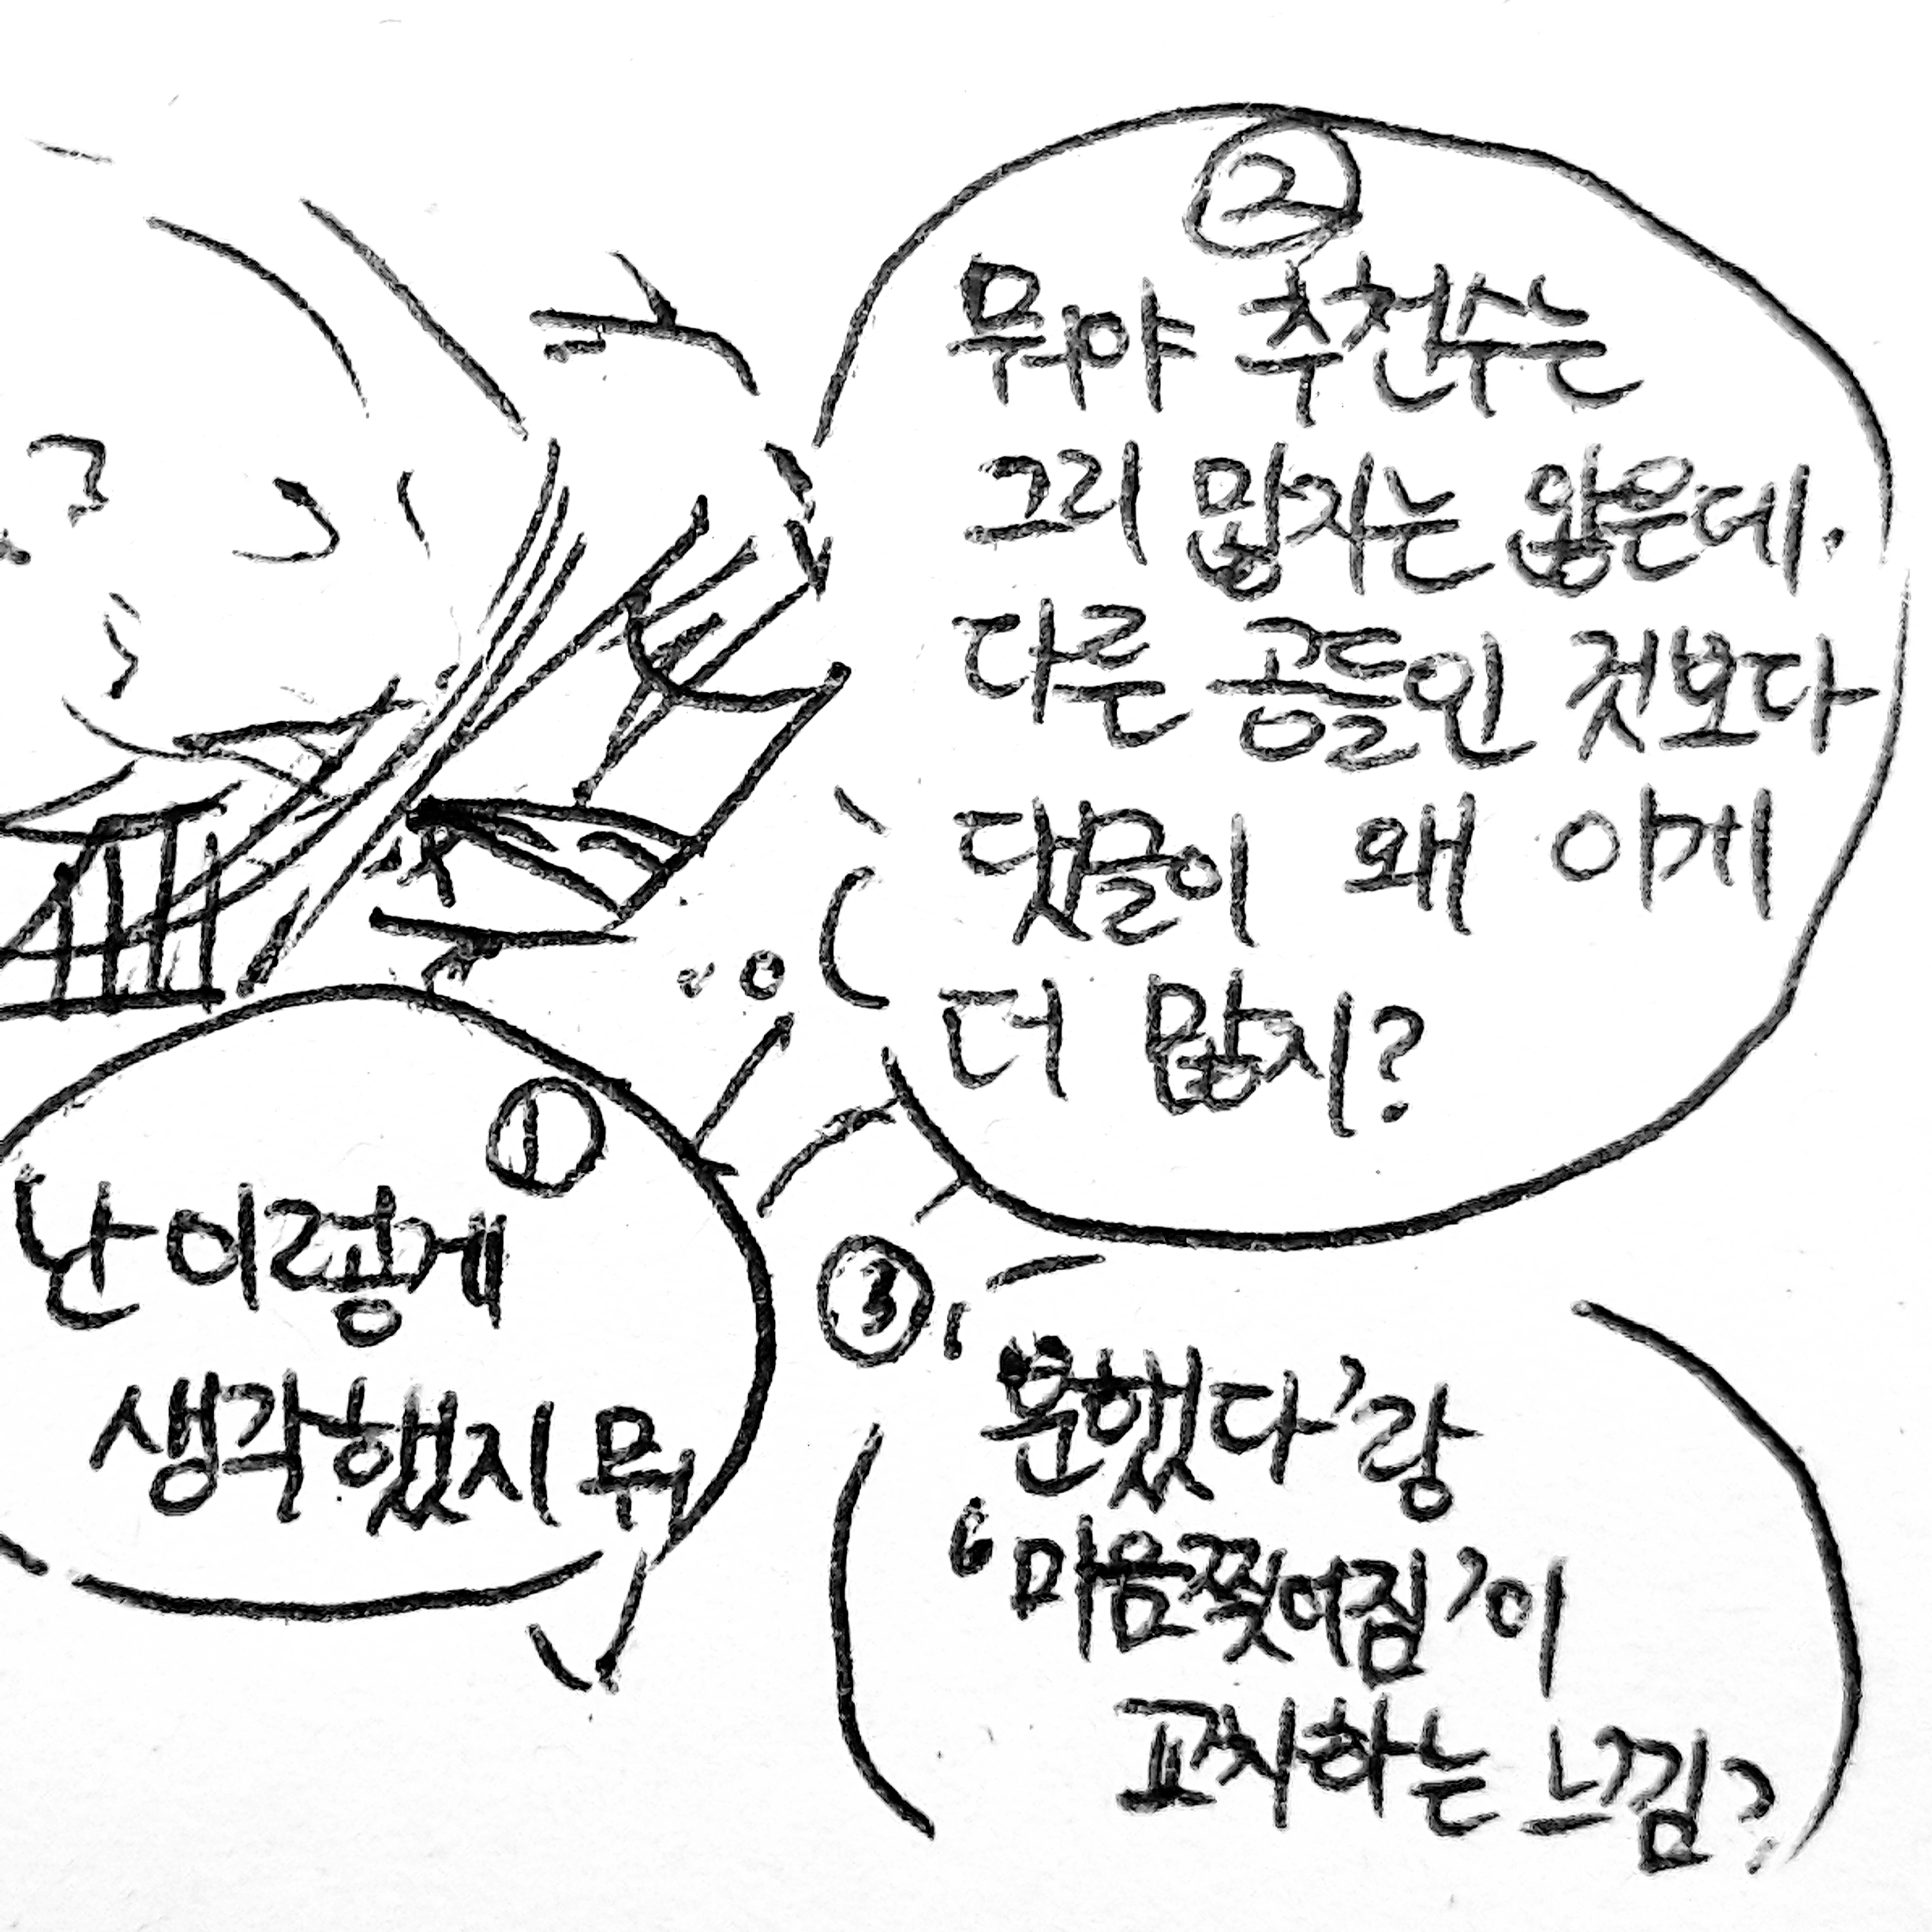 ①
난 이렇게
생각했지 뭐
②
뭐야 추천수는
그리 많지는 않은데.
다른 공들인 것보다
댓글이 왜 이게
더 많지?
③
'마음찢어짐'이
교차하는 느낌?